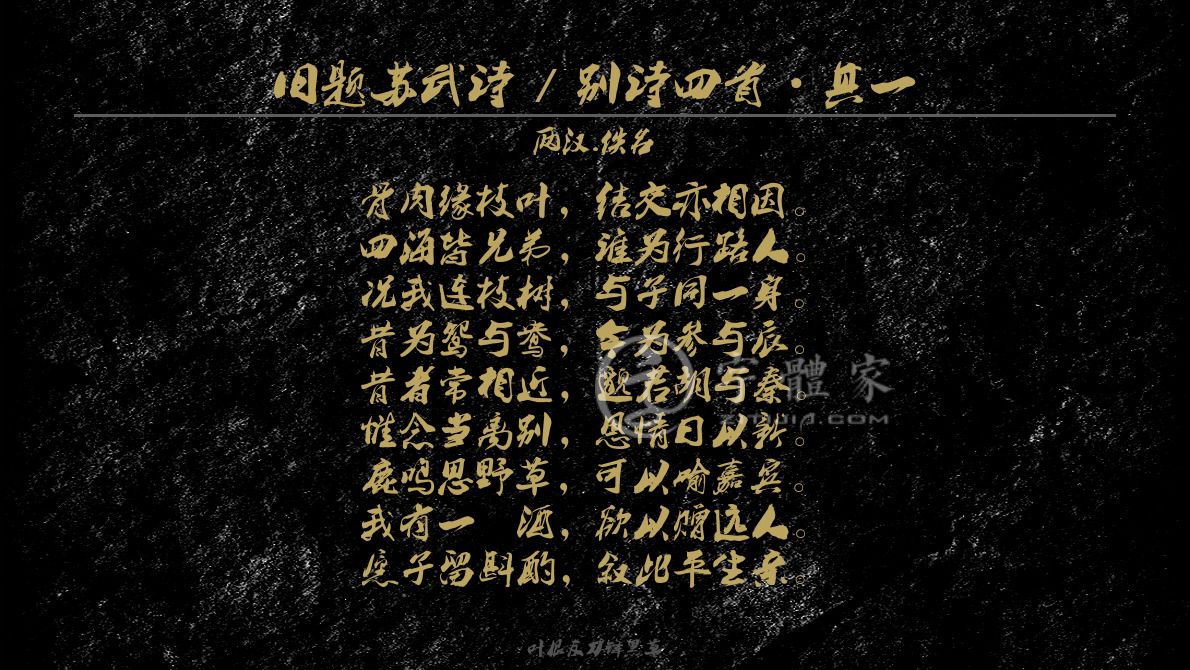 旧题苏武诗 / 别诗四首·其一
两汉.佚名
骨肉缘枝叶，结交亦相因。
四海皆兄弟，谁为行路人。
况我连枝树，与子同一身。
昔为鸳与鸯，今为参与辰。
昔者常相近，邈若胡与秦。
惟念当离别，恩情日以新。
鹿鸣思野草，可以喻嘉宾。
我有一 酒，欲以赠远人。
愿子留斟酌，叙此平生亲。
字體家
ZITIJIA.COM
叶根友刀锋黑草